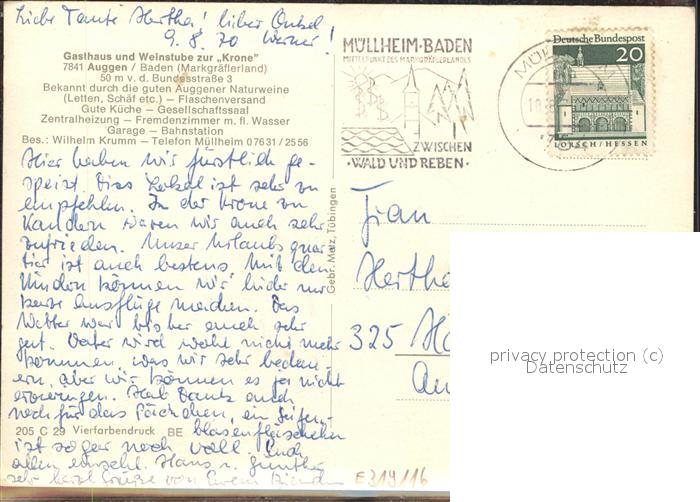 Liebe Tante Hertha! lieber Onkel
9.8.70 Werner!
Gasthaus und Weinstube zur „Krone"
7841 Auggen / Baden (Markgräflerland)
50 m v. d. Bundesstraße 3
Bekannt durch die guten Auggener Naturweine
(Letten, Schäf etc.) — Flaschenversand
Gute Küche — Gesellschaftssaal
Zentralheizung — Fremdenzimmer m. fl. Wasser
Garage — Bahnstation
Bes.: Wilhelm Krumm — Telefon Müllheim 07631 / 2556
Hier haben wir fürstlich ge-
speist. Das Lokal ist sehr zu
empfehlen. In der Krone zu
Kandern waren wir auch sehr
zufrieden. Unser Urlaubsquar-
tier ist auch bestens. Mit den
Kindern können wir leider nur
kurze Ausflüge machen. Das
Wetter war bisher auch sehr
gut. Vater wird wohl nicht mehr
kommen, was wir sehr bedau-
ern, aber wir können es ja nicht
erzwingen. Hab Dank auch
noch für das Päckchen, ein Seifen-
blasenfläschchen
ist sogar noch voll. Euch
allen einschl. Hans u. Günther
sehr herzl. Grüße von Eurem
205 C 29 Vierfarbendruck BE
Gebr. Metz, Tübingen
MÜLLHEIM·BADEN
MITTELPUNKT DES MARKGRÄFLERLANDES
ZWISCHEN
·WALD UND REBEN·
Deutsche Bundespost
20
LORSCH/HESSEN
Frau
Hertha
325
privacy protection (c)
Datenschutz
E319/16